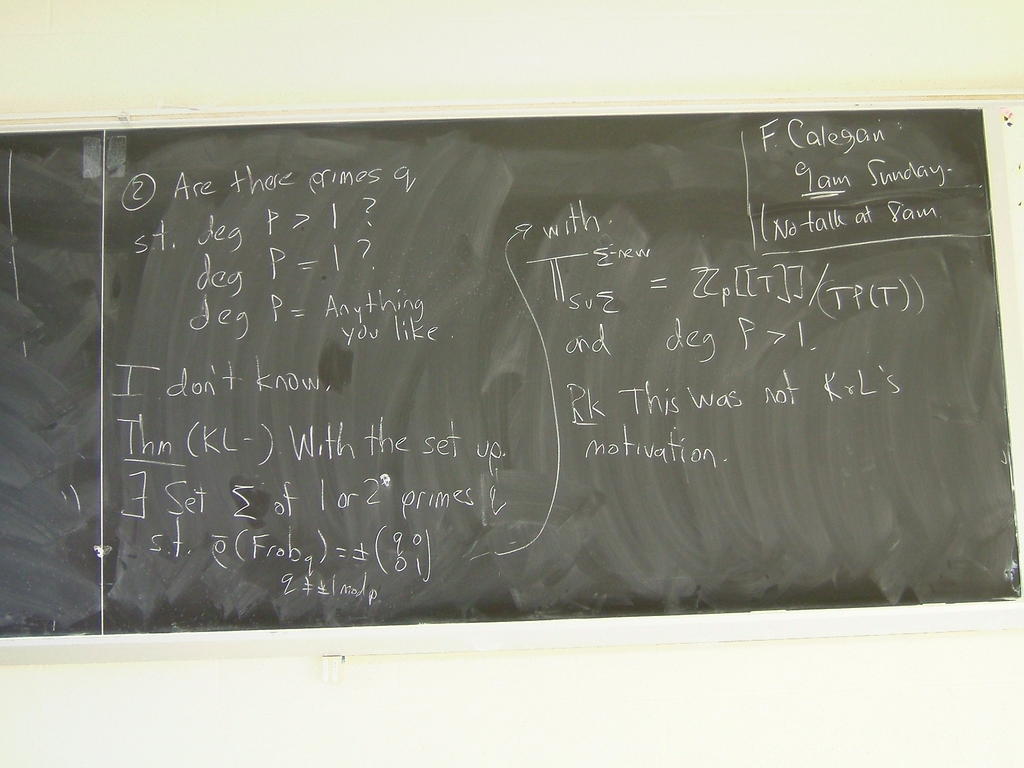 ② Are there primes q
s.t. deg P > 1 ?
deg P = 1 ?
deg P = Anything
you like.
I don't know.
Thm (KL-). With the set up.
∃ Set Σ of 1 or 2 primes q
s.t. ρ̄(Frob_q) = ± (q 0
0 1)
q ≠ ±1 mod p
with.
𝕋^{Σ-new}_{S∪Σ} = ℤ_p[[T]]/(TP(T))
and deg P > 1.
Rk This was not K&L's
motivation.
F. Calegari:
9am Sunday.
(No talk at 8am